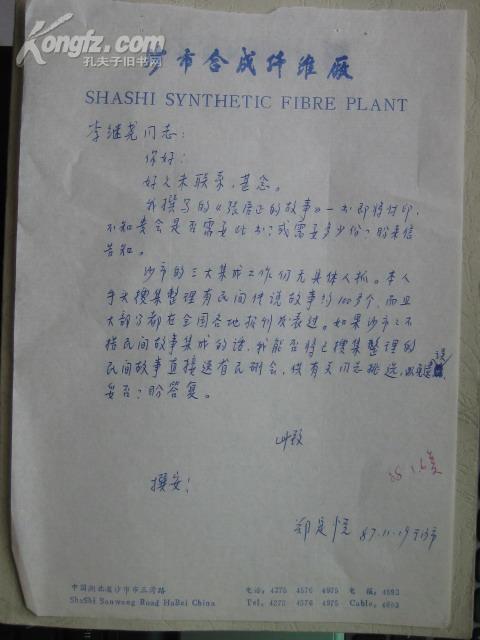 Kongfz.com
孔夫子旧书网
沙市合成纤维厂
SHASHI SYNTHETIC FIBRE PLANT
李继尧同志：
你好！
好久未联系，甚念。
我撰写的《张居正的故事》一书即将付印，
不知贵会是否需要此书？或需要多少份？盼来信
告知。
沙市的三大集成工作仍无具体人抓。本人
手头搜集整理有民间传说故事约100多个，而且
大部分都在全国各地报刊发表过。如果沙市
搞民间故事集成的话，我能否将已搜集整理的
民间故事直接送省民研会，供有关同志挑选，
妥否？盼答复。
此致
撰安！
郑定 87.11.19于沙市
中国湖北省沙市市三湾路
ShaShi Sanwang Road HuBei China
电话：4375 4576 4975 电 挂：4693
Tel. 4375 4576 4975 Cable. 4693